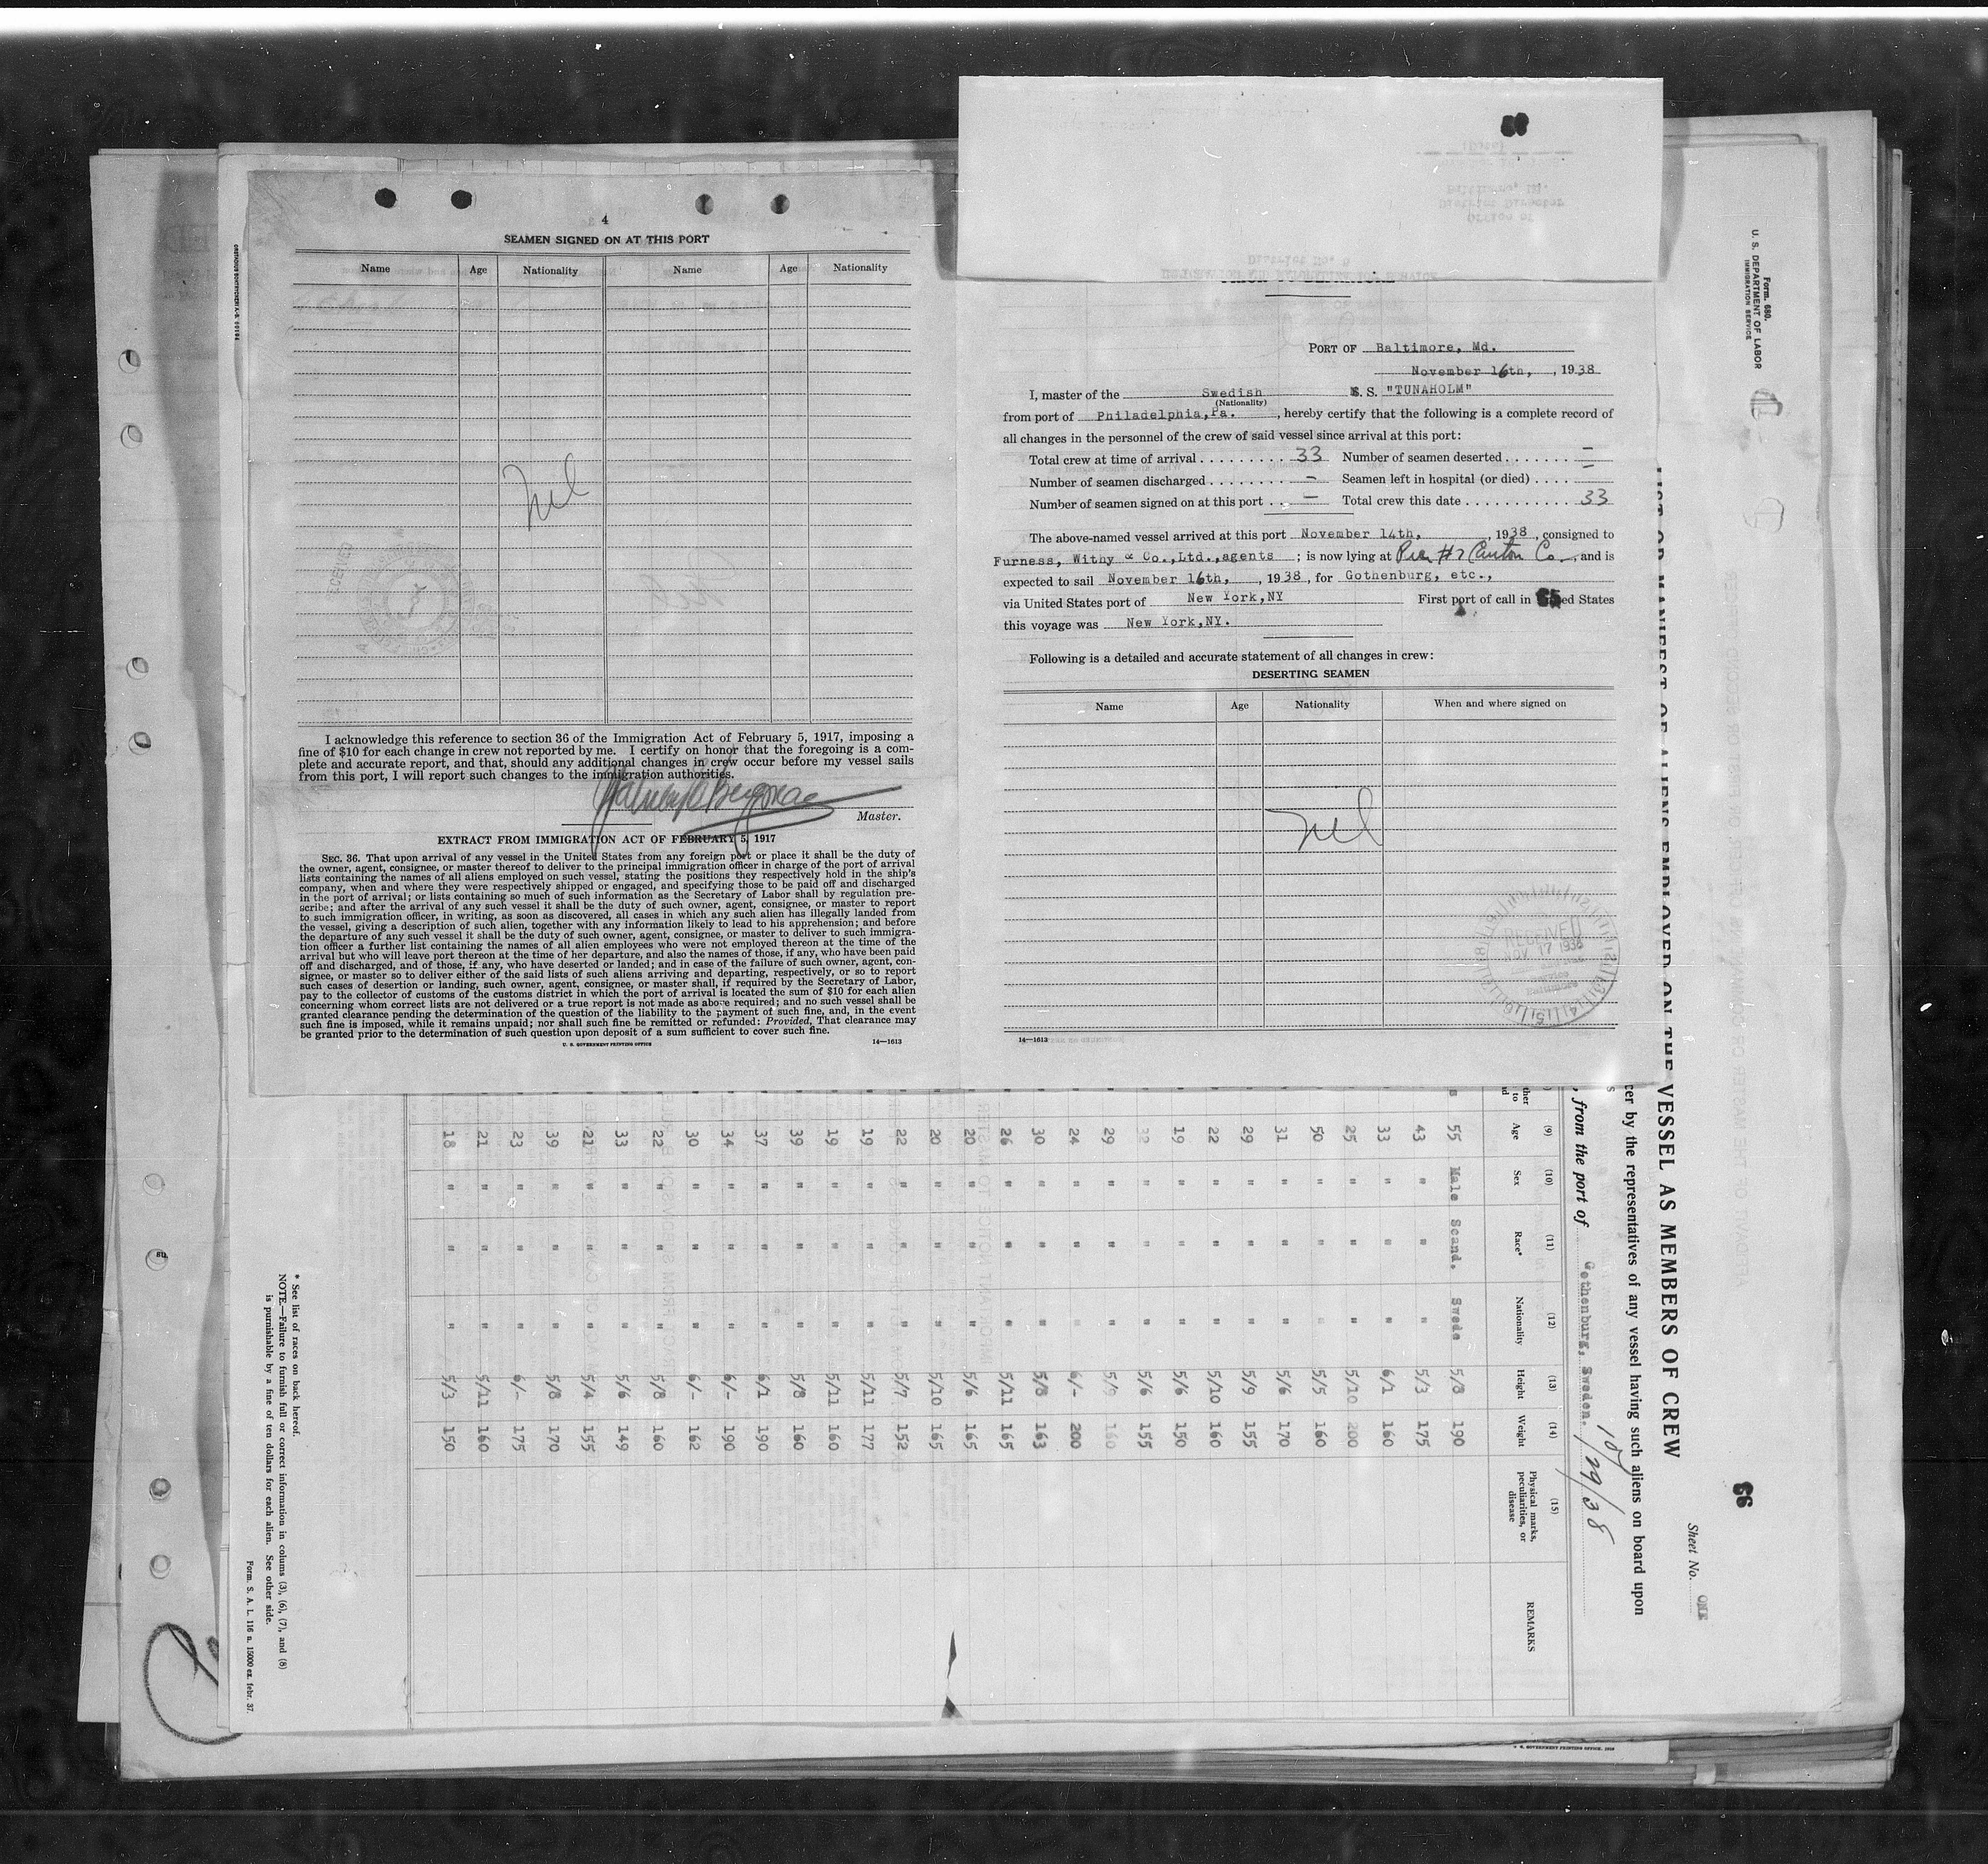 4
SEAMEN SIGNED ON AT THIS PORT
Name Age Nationality Name Age Nationality
Nil
I acknowledge this reference to section 36 of the Immigration Act of February 5, 1917, imposing a
fine of $10 for each change in crew not reported by me. I certify on honor that the foregoing is a com-
plete and accurate report, and that, should any additional changes in crew occur before my vessel sails
from this port, I will report such changes to the immigration authorities.
Master.
EXTRACT FROM IMMIGRATION ACT OF FEBRUARY 5, 1917
SEC. 36. That upon arrival of any vessel in the United States from any foreign port or place it shall be the duty of
the owner, agent, consignee, or master thereof to deliver to the principal immigration officer in charge of the port of arrival
lists containing the names of all aliens employed on such vessel, stating the positions they respectively hold in the ship's
company, when and where they were respectively shipped or engaged, and specifying those to be paid off and discharged
in the port of arrival; or lists containing so much of such information as the Secretary of Labor shall by regulation pre-
scribe; and after the arrival of any such vessel it shall be the duty of such owner, agent, consignee, or master to report
to such immigration officer, in writing, as soon as discovered, all cases in which any such alien has illegally landed from
the vessel, giving a description of such alien, together with any information likely to lead to his apprehension; and before
the departure of any such vessel it shall be the duty of such owner, agent, consignee, or master to deliver to such immigra-
tion officer a further list containing the names of all alien employees who were not employed thereon at the time of the
arrival but who will leave port thereon at the time of her departure, and also the names of those, if any, who have been paid
off and discharged, and of those, if any, who have deserted or landed; and in case of the failure of such owner, agent, con-
signee, or master so to deliver either of the said lists of such aliens arriving and departing, respectively, or so to report
such cases of desertion or landing, such owner, agent, consignee, or master shall, if required by the Secretary of Labor,
pay to the collector of customs of the customs district in which the port of arrival is located the sum of $10 for each alien
concerning whom correct lists are not delivered or a true report is not made as above required; and no such vessel shall be
granted clearance pending the determination of the question of the liability to the payment of such fine, and, in the event
such fine is imposed, while it remains unpaid; nor shall such fine be remitted or refunded: Provided, That clearance may
be granted prior to the determination of such question upon deposit of a sum sufficient to cover such fine.
U. S. GOVERNMENT PRINTING OFFICE 14—1613
PORT OF Baltimore, Md.
November 16th, , 1938
I, master of the Swedish S. S. "TUNAHOLM"
(Nationality)
from port of Philadelphia, Pa. , hereby certify that the following is a complete record of
all changes in the personnel of the crew of said vessel since arrival at this port:
Total crew at time of arrival 33 Number of seamen deserted —
Number of seamen discharged — Seamen left in hospital (or died) —
Number of seamen signed on at this port — Total crew this date 33
The above-named vessel arrived at this port November 14th, , 1938, consigned to
Furness, Withy & Co.,Ltd.,agents ; is now lying at Pier #7 Canton Co. , and is
expected to sail November 16th, , 1938, for Gothenburg, etc.,
via United States port of New York,NY First port of call in States
this voyage was New York,NY.
65
Following is a detailed and accurate statement of all changes in crew:
DESERTING SEAMEN
Name Age Nationality When and where signed on
Nil
RECEIVED
NOV 17 1938
Baltimore
14—1613
Form 680.
U. S. DEPARTMENT OF LABOR
IMMIGRATION SERVICE
LIST OR MANIFEST OF ALIENS EMPLOYED ON THE VESSEL AS MEMBERS OF CREW
Sheet No. ONE
66
cer by the representatives of any vessel having such aliens on board upon
, from the port of Gothenburg, Sweden. 10/29/38
(9) (10) (11) (12) (13) (14) (15)
Age Sex Race* Nationality Height Weight Physical marks, peculiarities, or disease REMARKS
55 Male Scand. Swede 5/8 190
43 " " " 5/3 175
33 " " " 6/1 160
25 " " " 5/10 200
50 " " " 5/5 160
31 " " " 5/6 170
29 " " " 5/9 155
22 " " " 5/10 160
19 " " " 5/6 150
" " " 5/6 155
29 " " " 5/9 160
24 " " " 6/- 200
30 " " " 5/8 163
26 " " " 5/11 165
20 " " " 5/6 165
20 " " " 5/10 165
22 " " " 5/7 152
19 " " " 5/11 177
19 " " " 5/11 160
39 " " " 5/8 160
37 " " " 6/1 190
34 " " " 6/- 190
30 " " " 6/- 162
22 " " " 5/8 160
33 " " " 5/6 149
21 " " " 5/4 155
39 " " " 5/8 170
23 " " " 6/- 175
21 " " " 5/11 160
18 " " " 5/3 150
* See list of races on back hereof.
NOTE.—Failure to furnish full or correct information in colums (3), (6), (7), and (8)
is punishable by a fine of ten dollars for each alien. See other side.
Form. S. A. L. 116 n. 15000 ex. febr. 37.
U. S. GOVERNMENT PRINTING OFFICE